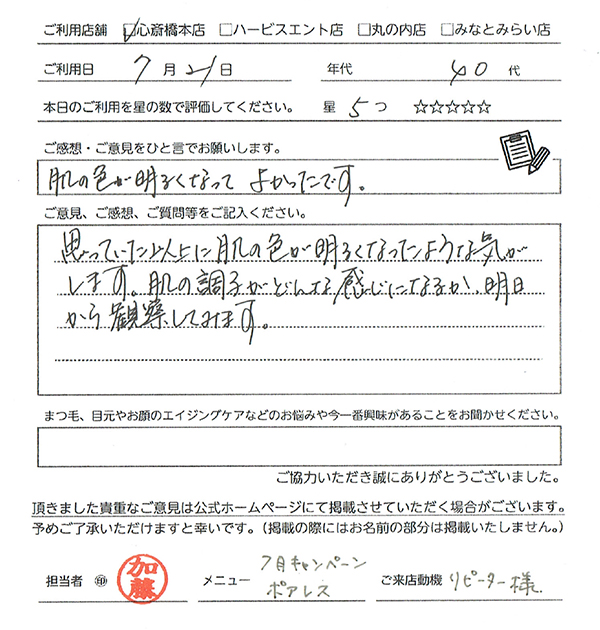 ご利用店舗 ☑心斎橋本店 □ハービスエント店 □丸の内店 □みなとみらい店
ご利用日 7月21日 年代 40代
本日のご利用を星の数で評価してください。 星 5つ ☆☆☆☆☆
ご感想・ご意見をひと言でお願いします。
肌の色が明るくなって よかったです。
ご意見、ご感想、ご質問等をご記入ください。
思っていた以上に肌の色が明るくなったような気が
します。肌の調子がどんな感じになるか、明日
から観察してみます。
まつ毛、目元やお顔のエイジングケアなどのお悩みや今一番興味があることをお聞かせください。
ご協力いただき誠にありがとうございました。
頂きました貴重なご意見は公式ホームページにて掲載させていただく場合がございます。
予めご了承いただけますと幸いです。（掲載の際にはお名前の部分は掲載いたしません。）
担当者 ㊞ 加藤 メニュー 7月キャンペーン ご来店動機 リピーター様
ポアレス